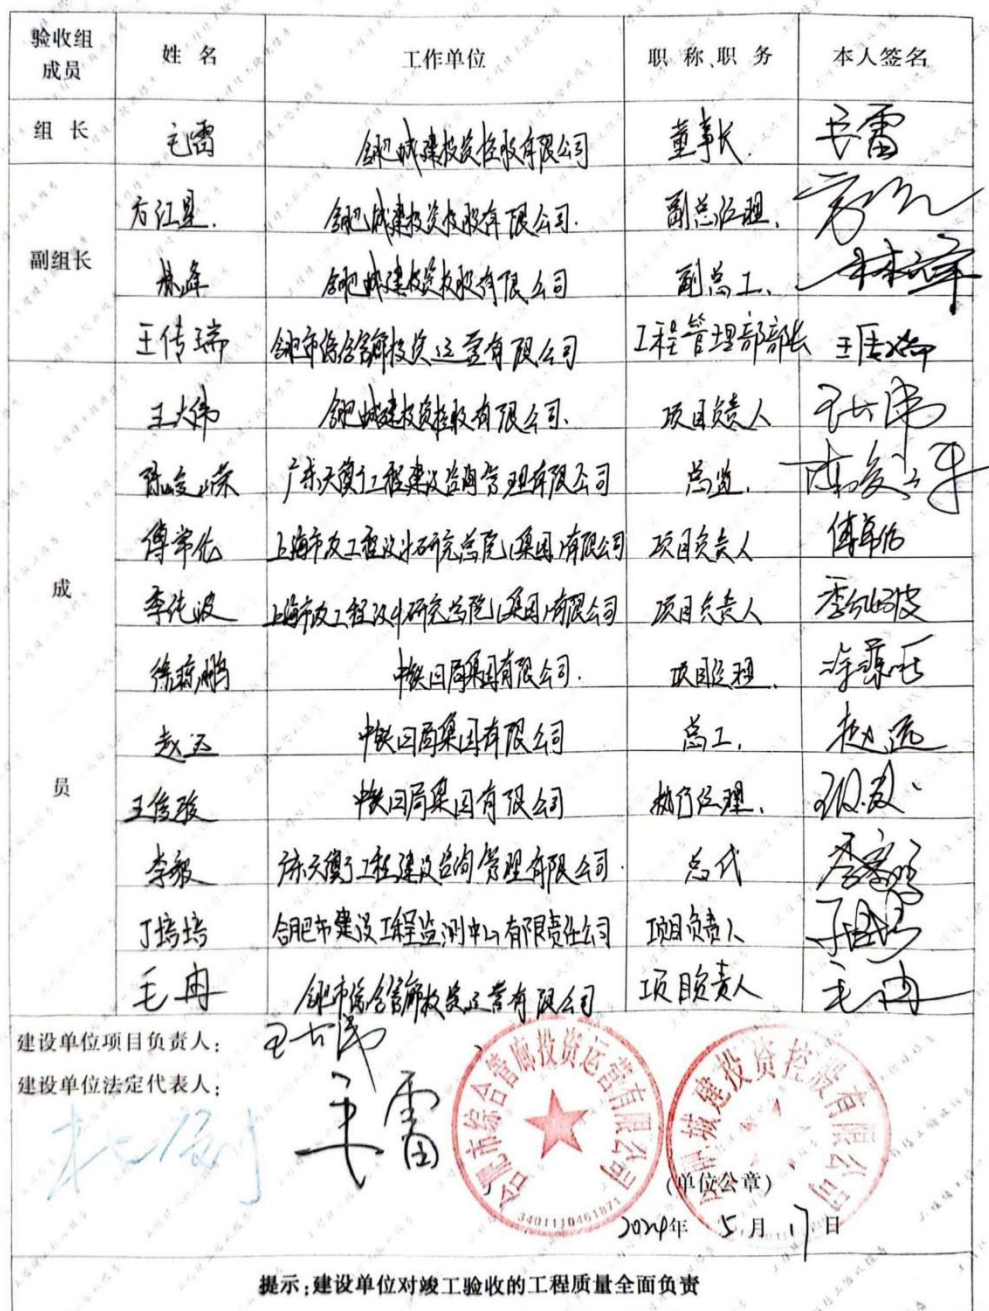 验收组成员 姓名 工作单位 职称、职务 本人签名
组长 毛雷 合肥城建投资控股有限公司 董事长 毛雷
副组长 方江星. 合肥城建投资控股有限公司. 副总经理.
林峰 合肥城建投资控股有限公司 副总工. 林峰
王传瑞 合肥市综合管廊投资运营有限公司 工程管理部部长 王传瑞
成员 王大伟 合肥城建投资控股有限公司. 项目负责人 王大伟
陈峻荣 广东天衡工程建设咨询管理有限公司 总监.
傅常佑 上海市政工程设计研究总院(集团)有限公司 项目负责人
李纯波 上海市政工程设计研究总院(集团)有限公司 项目负责人
中铁四局集团有限公司. 项目经理.
赵远 中铁四局集团有限公司 总工. 赵远
王俊骏 中铁四局集团有限公司 执行经理.
李毅 广东天衡工程建设咨询管理有限公司. 总代
丁培培 合肥市建设工程监测中心有限责任公司 项目负责人 丁培培
毛冉 合肥市综合管廊投资运营有限公司 项目负责人 毛冉
建设单位项目负责人: 王大伟
建设单位法定代表人: 毛雷
合肥市综合管廊投资运营有限公司
3401110461871
合肥城建投资控股有限公司
(单位公章)
2024年 5月 17日
提示:建设单位对竣工验收的工程质量全面负责